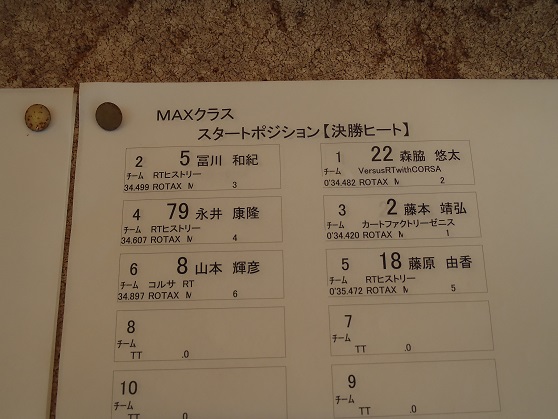 MAXクラス
スタートポジション【決勝ヒート】
2 5 冨川 和紀
チーム RTヒストリー
34.499 ROTAX M 3
1 22 森脇 悠太
チーム VersusRTwithCORSA
0'34.482 ROTAX M 2
4 79 永井 康隆
チーム RTヒストリー
34.607 ROTAX M 4
3 2 藤本 靖弘
チーム カートファクトリーゼニス
0'34.420 ROTAX M 1
6 8 山本 輝彦
チーム コルサ RT
34.897 ROTAX M 6
5 18 藤原 由香
チーム RTヒストリー
0'35.472 ROTAX M 5
8
チーム
TT .0
7
チーム
TT .0
10
チーム
TT .0
9
チーム
TT .0